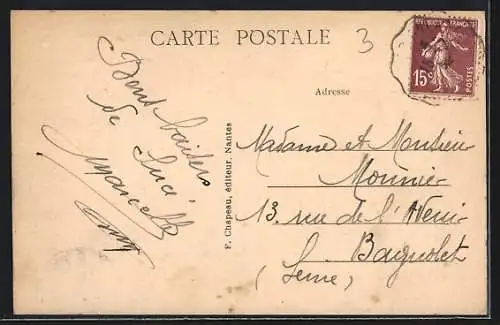 CARTE POSTALE
3
REPUBLIQUE FRANÇAISE
15c
POSTES
Adresse
Bons baisers
de Luce
Marcelle
F. Chapeau, éditeur, Nantes
Madame et Monsieur
Monnier
13 rue de l'Avenir
Bagnolet
(Seine)